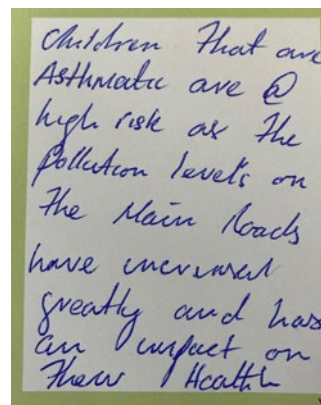 Children that are
Asthmatic are @
high risk as the
pollution levels on
the Main Roads
have increased
greatly and has
an impact on
their Health